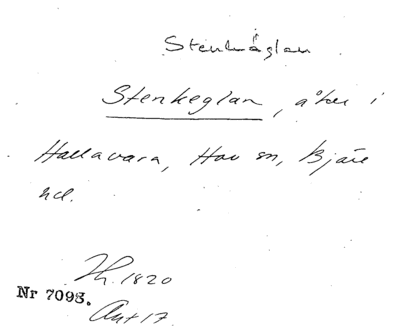 Stenkäglan
Stenkeglan, åker i
Hallavara, Hov sn, Bjäre
hd.
Th. 1820
Nr 7093.
Ant 17